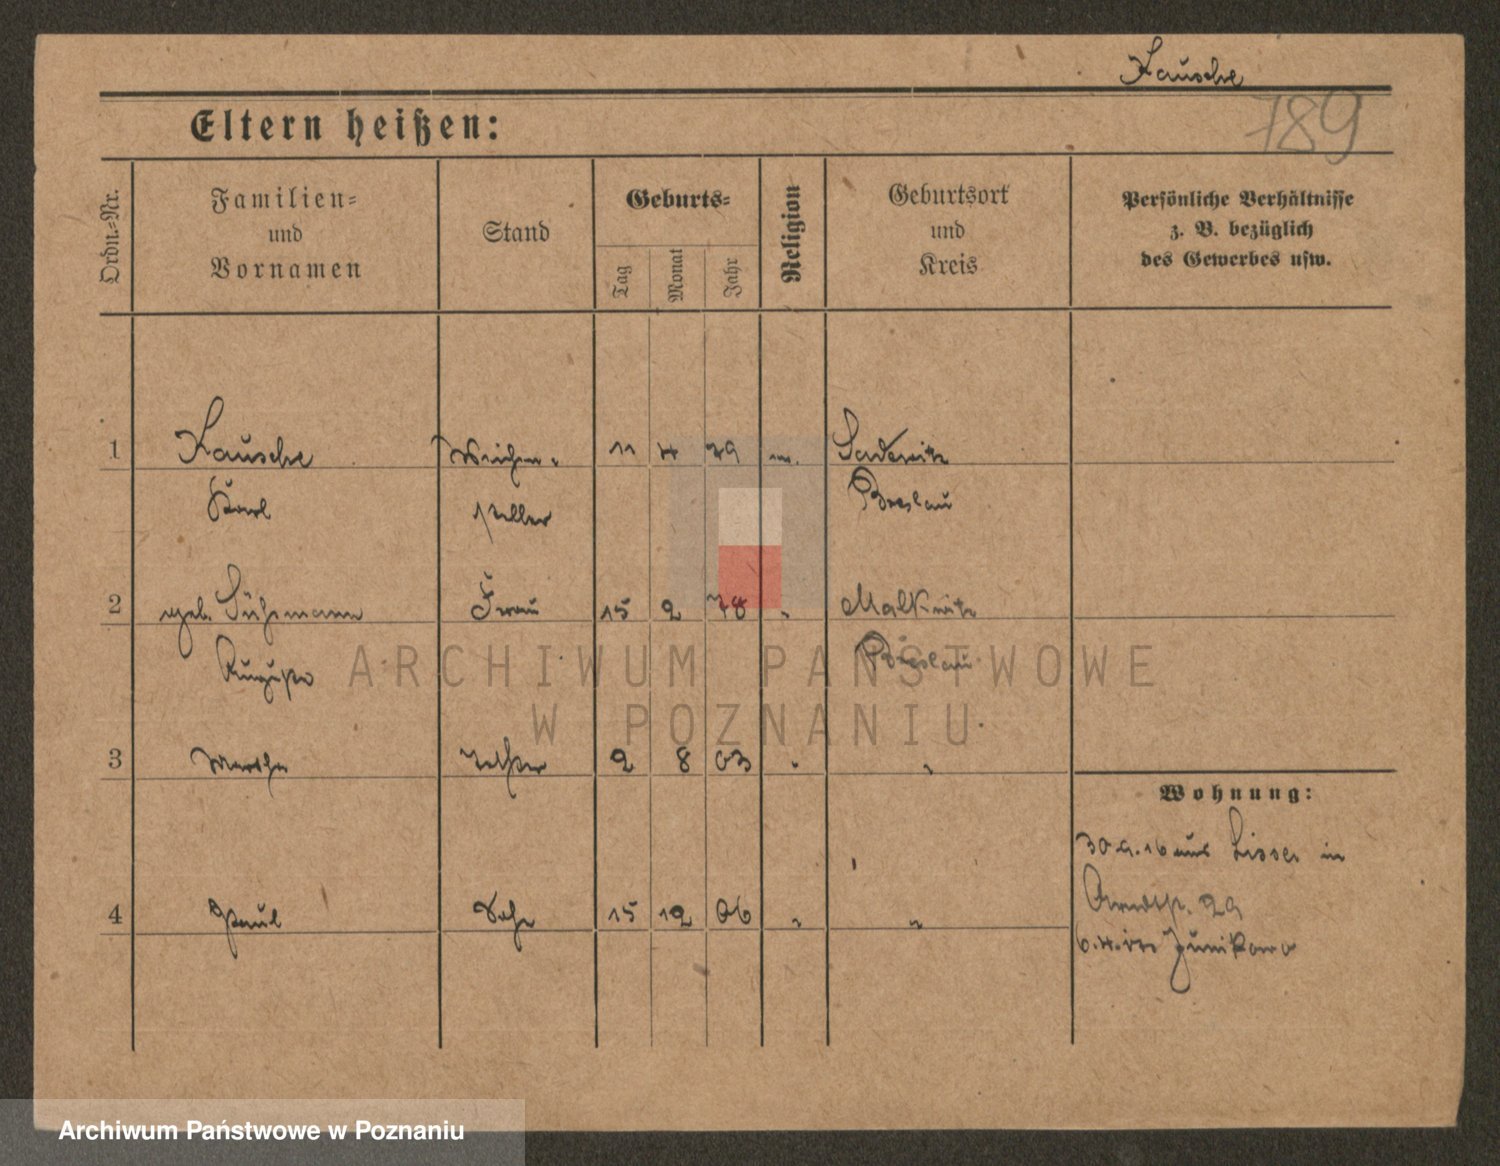 Kausche
789
Eltern heißen:
Ordn.-Nr.
Familien-
und
Vornamen
Stand
Geburts-
Tag
Monat
Jahr
Religion
Geburtsort
und
Kreis
Persönliche Verhältnisse
z. B. bezüglich
des Gewerbes usw.
1 Kausche Weichen- 11 4 79 Sadewitz
Karl steller Breslau
2 geb. Frau 15 2 78 " Malkwitz
Auguste Breslau
3 Martha Tochter 2 8 03 " "
Wohnung:
4 Paul Sohn 15 12 06 " "
aus Lissa in
29
Junikowo
ARCHIWUM PAŃSTWOWE
W POZNANIU
Archiwum Państwowe w Poznaniu